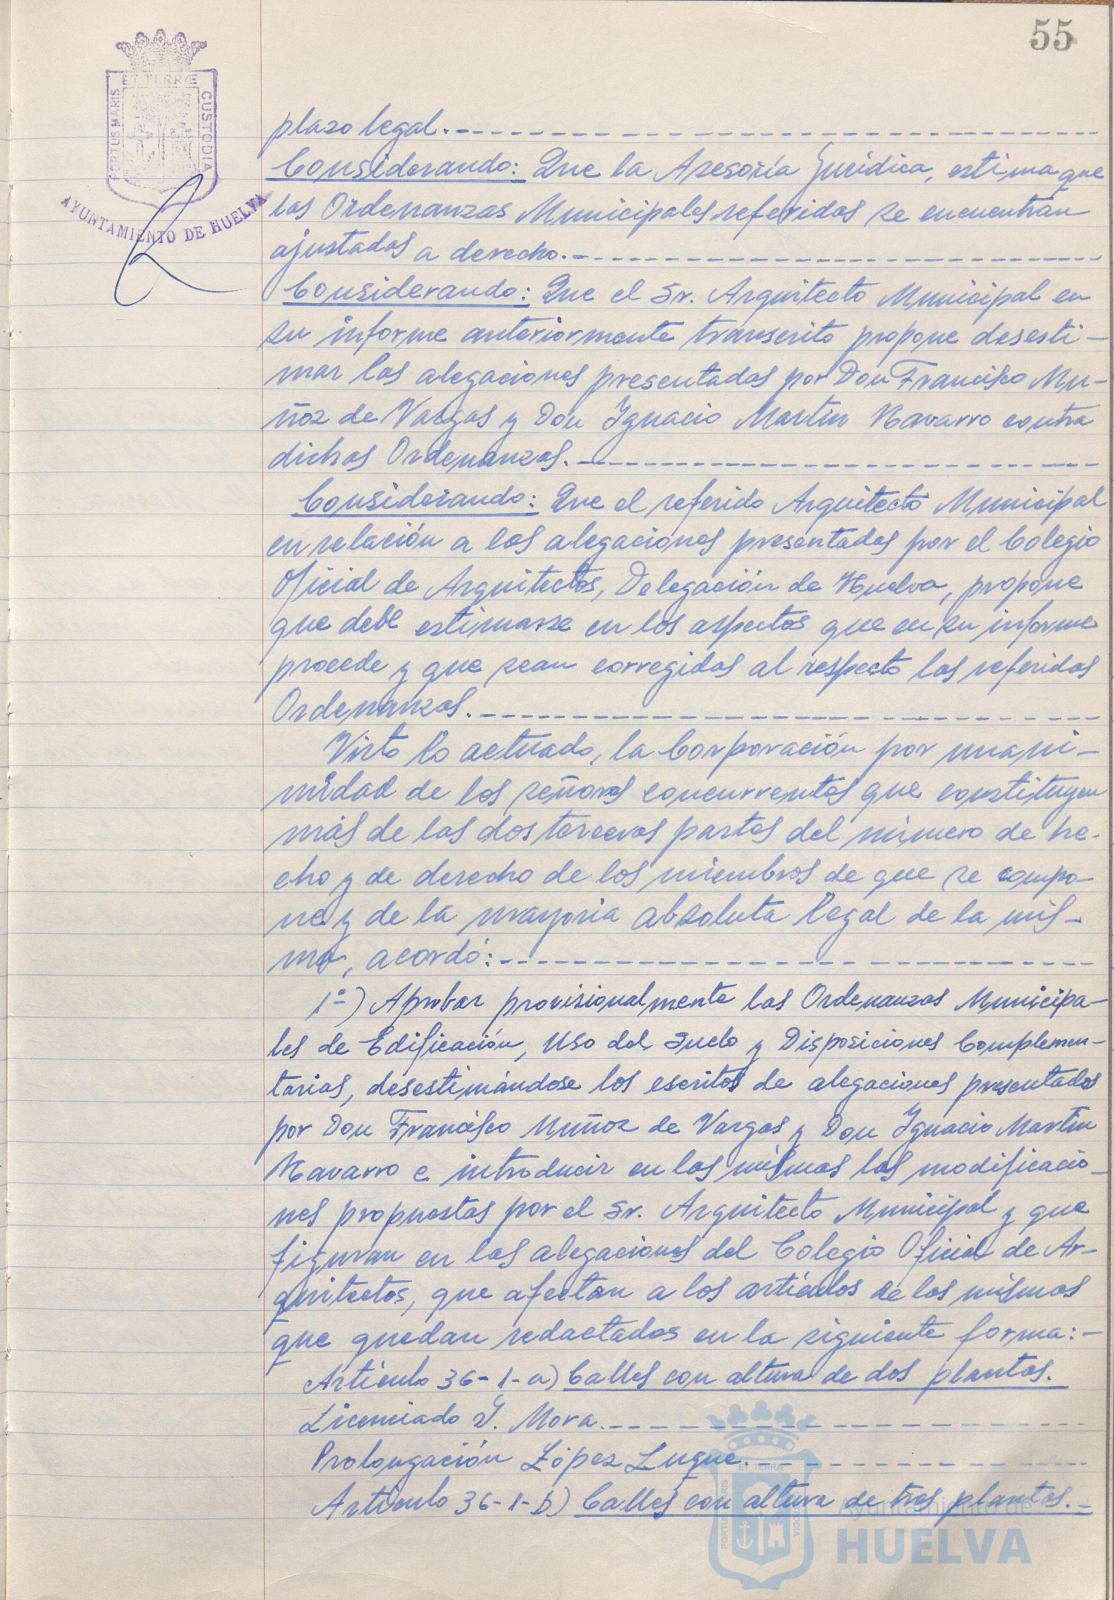 55
PORTUS MARIS ET TERRÆ CUSTODIA
AYUNTAMIENTO DE HUELVA
plazo legal.
Considerando: Que la Asesoría Jurídica, estima que
las Ordenanzas Municipales referidas se encuentran
ajustadas a derecho.
Considerando: Que el Sr. Arquitecto Municipal en
su informe anteriormente transcrito propone desesti-
mar las alegaciones presentadas por Don Francisco Mu-
ñoz de Vargas y Don Ignacio Martin Navarro contra
dichas Ordenanzas.
Considerando: Que el referido Arquitecto Municipal
en relación a las alegaciones presentadas por el Colegio
Oficial de Arquitectos, Delegación de Huelva, propone
que debe estimarse en los aspectos que en su informe
procede y que sean corregidas al respecto las referidas
Ordenanzas.
Visto lo actuado, la Corporación por unani-
midad de los señores concurrentes que constituyen
más de las dos terceras partes del número de he-
cho y de derecho de los miembros de que se compo-
ne y de la mayoria absoluta legal de la mis-
ma, acordó:
1º-) Aprobar provisionalmente las Ordenanzas Municipa-
les de Edificación, Uso del Suelo y Disposiciones Complemen-
tarias, desestimándose los escritos de alegaciones presentados
por Don Francisco Muñoz de Vargas y Don Ignacio Martin
Navarro e introducir en las mismas las modificacio-
nes propuestas por el Sr. Arquitecto Municipal y que
figuran en las alegaciones del Colegio Oficial de Ar-
quitectos, que afectan a los artículos de las mismas
que quedan redactados en la siguiente forma:-
Artículo 36-1-a) Calles con altura de dos plantas.
Licenciado J. Mora.
Prolongación López Luque.
Artículo 36-1-b) Calles con altura de tres plantas.-
Ayuntamiento de
HUELVA